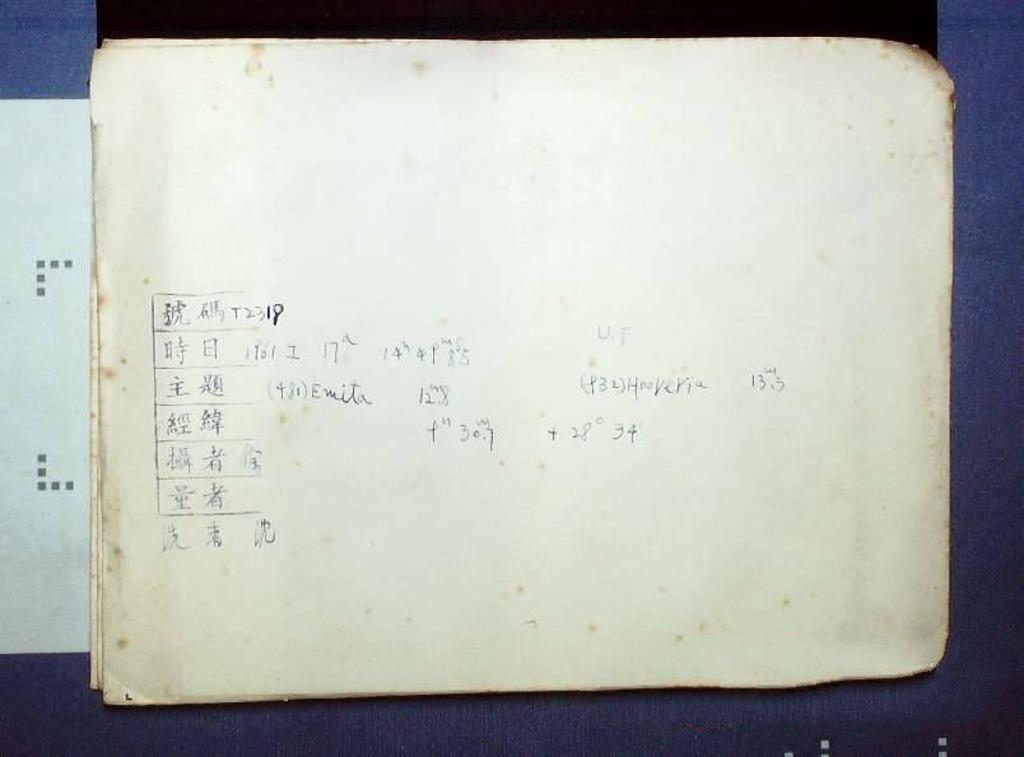 號碼 T2319
U.F
時日 1961 I 17ᵈ 14ʰ 49ᵐ 8ˢ.5
主題 (481)Emita 12ᵐ.8 (932)Hooveria 13ᵐ.3
經緯 9ʰ 30ᵐ.7 + 28° 34'
攝者 徐
量者
洗者 沈